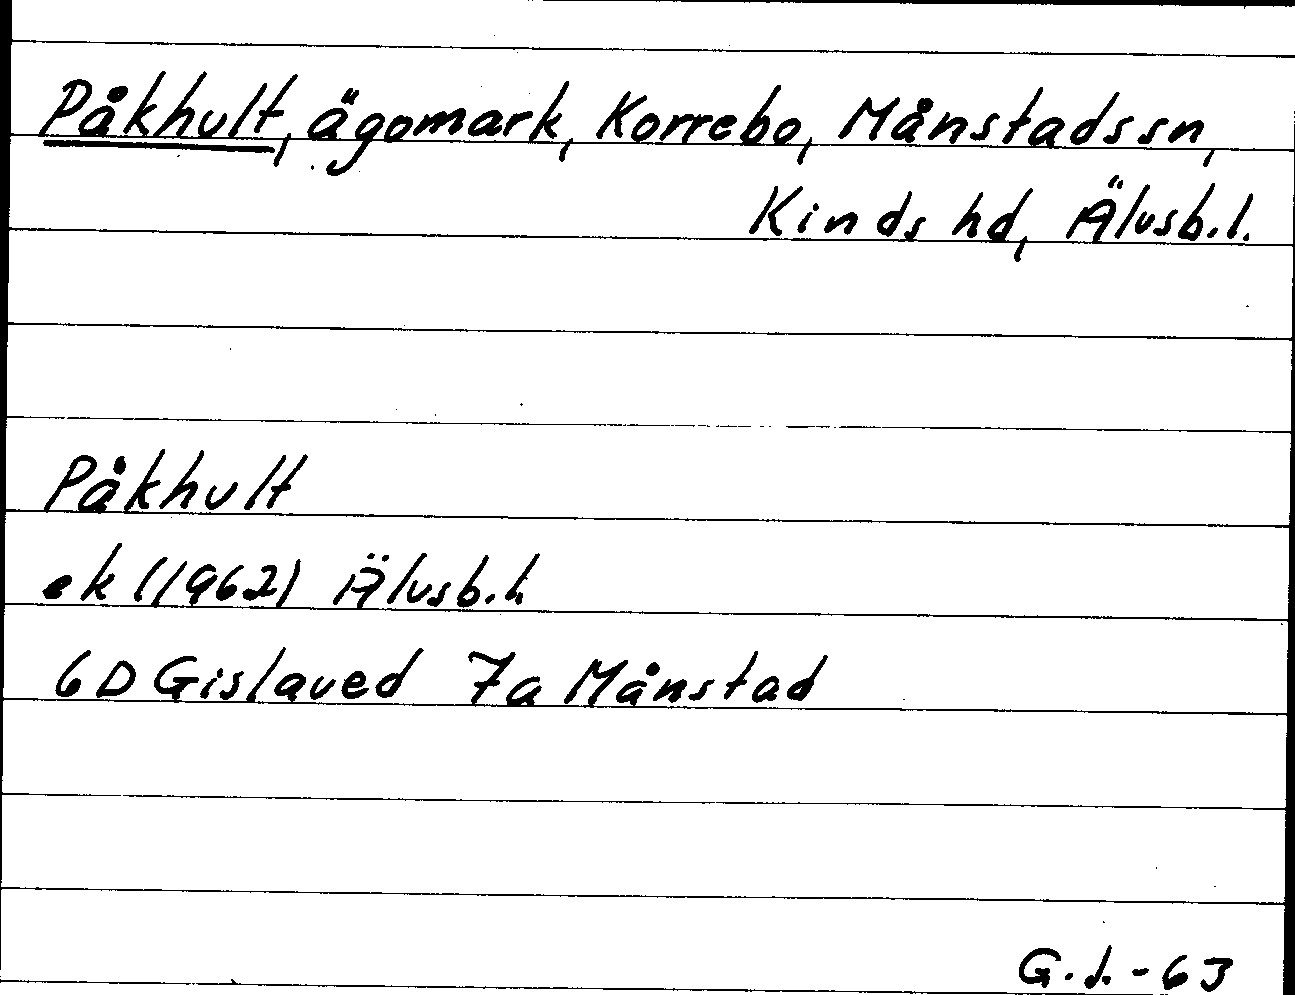 Påkhult, ägomark, Korrebo, Månstads sn,
Kinds hd, Älvsb. l.
Påkhult
ek (1962) Älvsb. l.
6D Gislaved 7a Månstad
-63